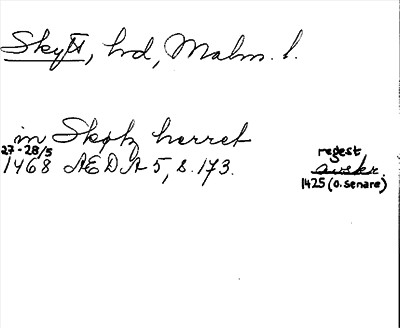 Skytt, hrd, Malm. l.
in Skøtz herret
27-28/5
1468 AEDA 5, s. 173.
regest
avskr.
1425 (o. senare)